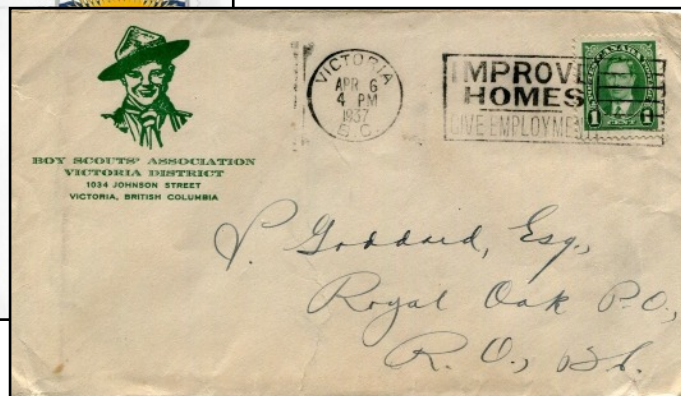 BOY SCOUTS' ASSOCIATION
VICTORIA DISTRICT
1034 JOHNSON STREET
VICTORIA, BRITISH COLUMBIA
VICTORIA
APR 6
4 PM
1937
B.C.
IMPROVE
HOMES
GIVE EMPLOYMEN
CANADA
1 1
P. Goddard, Esq.,
Royal Oak P.O.,
R. O.,